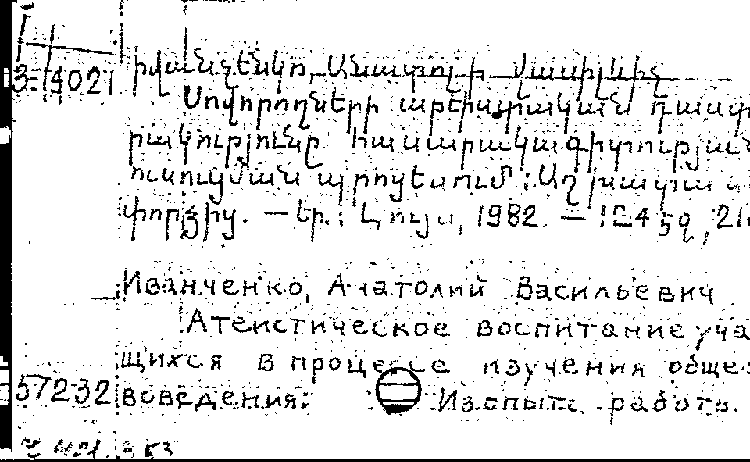 Իվանչենկո, Անատոլի Վասիլևիչ
3-4021
Սովորողների աթեիստական դաստ
րակությունը հասարակագիտության
ուսուցման պրոցեսում: Աշխատա
փորձից. — Եր.: Լույս, 1982. — 124 էջ, 21
Иванченко, Анатолий Васильевич
Атеистическое воспитание уча
щихся в процессе изучения общес
57232 воведения: Из опыта работы.